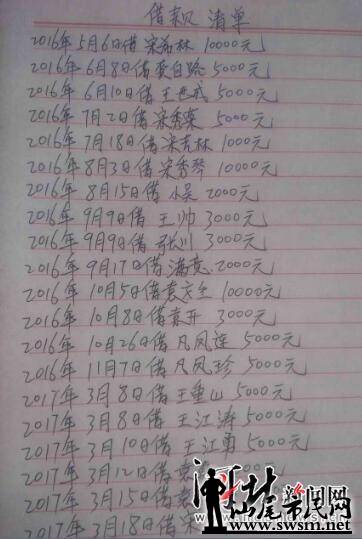 借款 清单
2016年5月6日借宋希林 10000元
2016年6月8日借 白路 5000元
2016年6月10日借王 成 5000元
2016年7月2日借宋秀荣 5000元
2016年7月18日借宋吉林 1000元
2016年8月3日借宋秀琴 10000元
2016年8月15日借小吴 2000元
2016年9月9日借王帅 3000元
2016年9月9日借张川 3000元
2016年9月17日借满意 2000元
2016年10月5日借袁 10000元
2016年10月8日借袁开 3000元
2016年10月26日借凡凤莲 5000元
2016年11月7日借凡凤珍 5000元
2017年3月8日借王重山 5000元
2017年3月8日借王江涛 5000元
2017年3月10日借王江勇 5000元
2017年3月12日借袁
2017年3月15日借袁
2017年3月18日借宋
新闻网
汕尾市民网
www.swsm.net